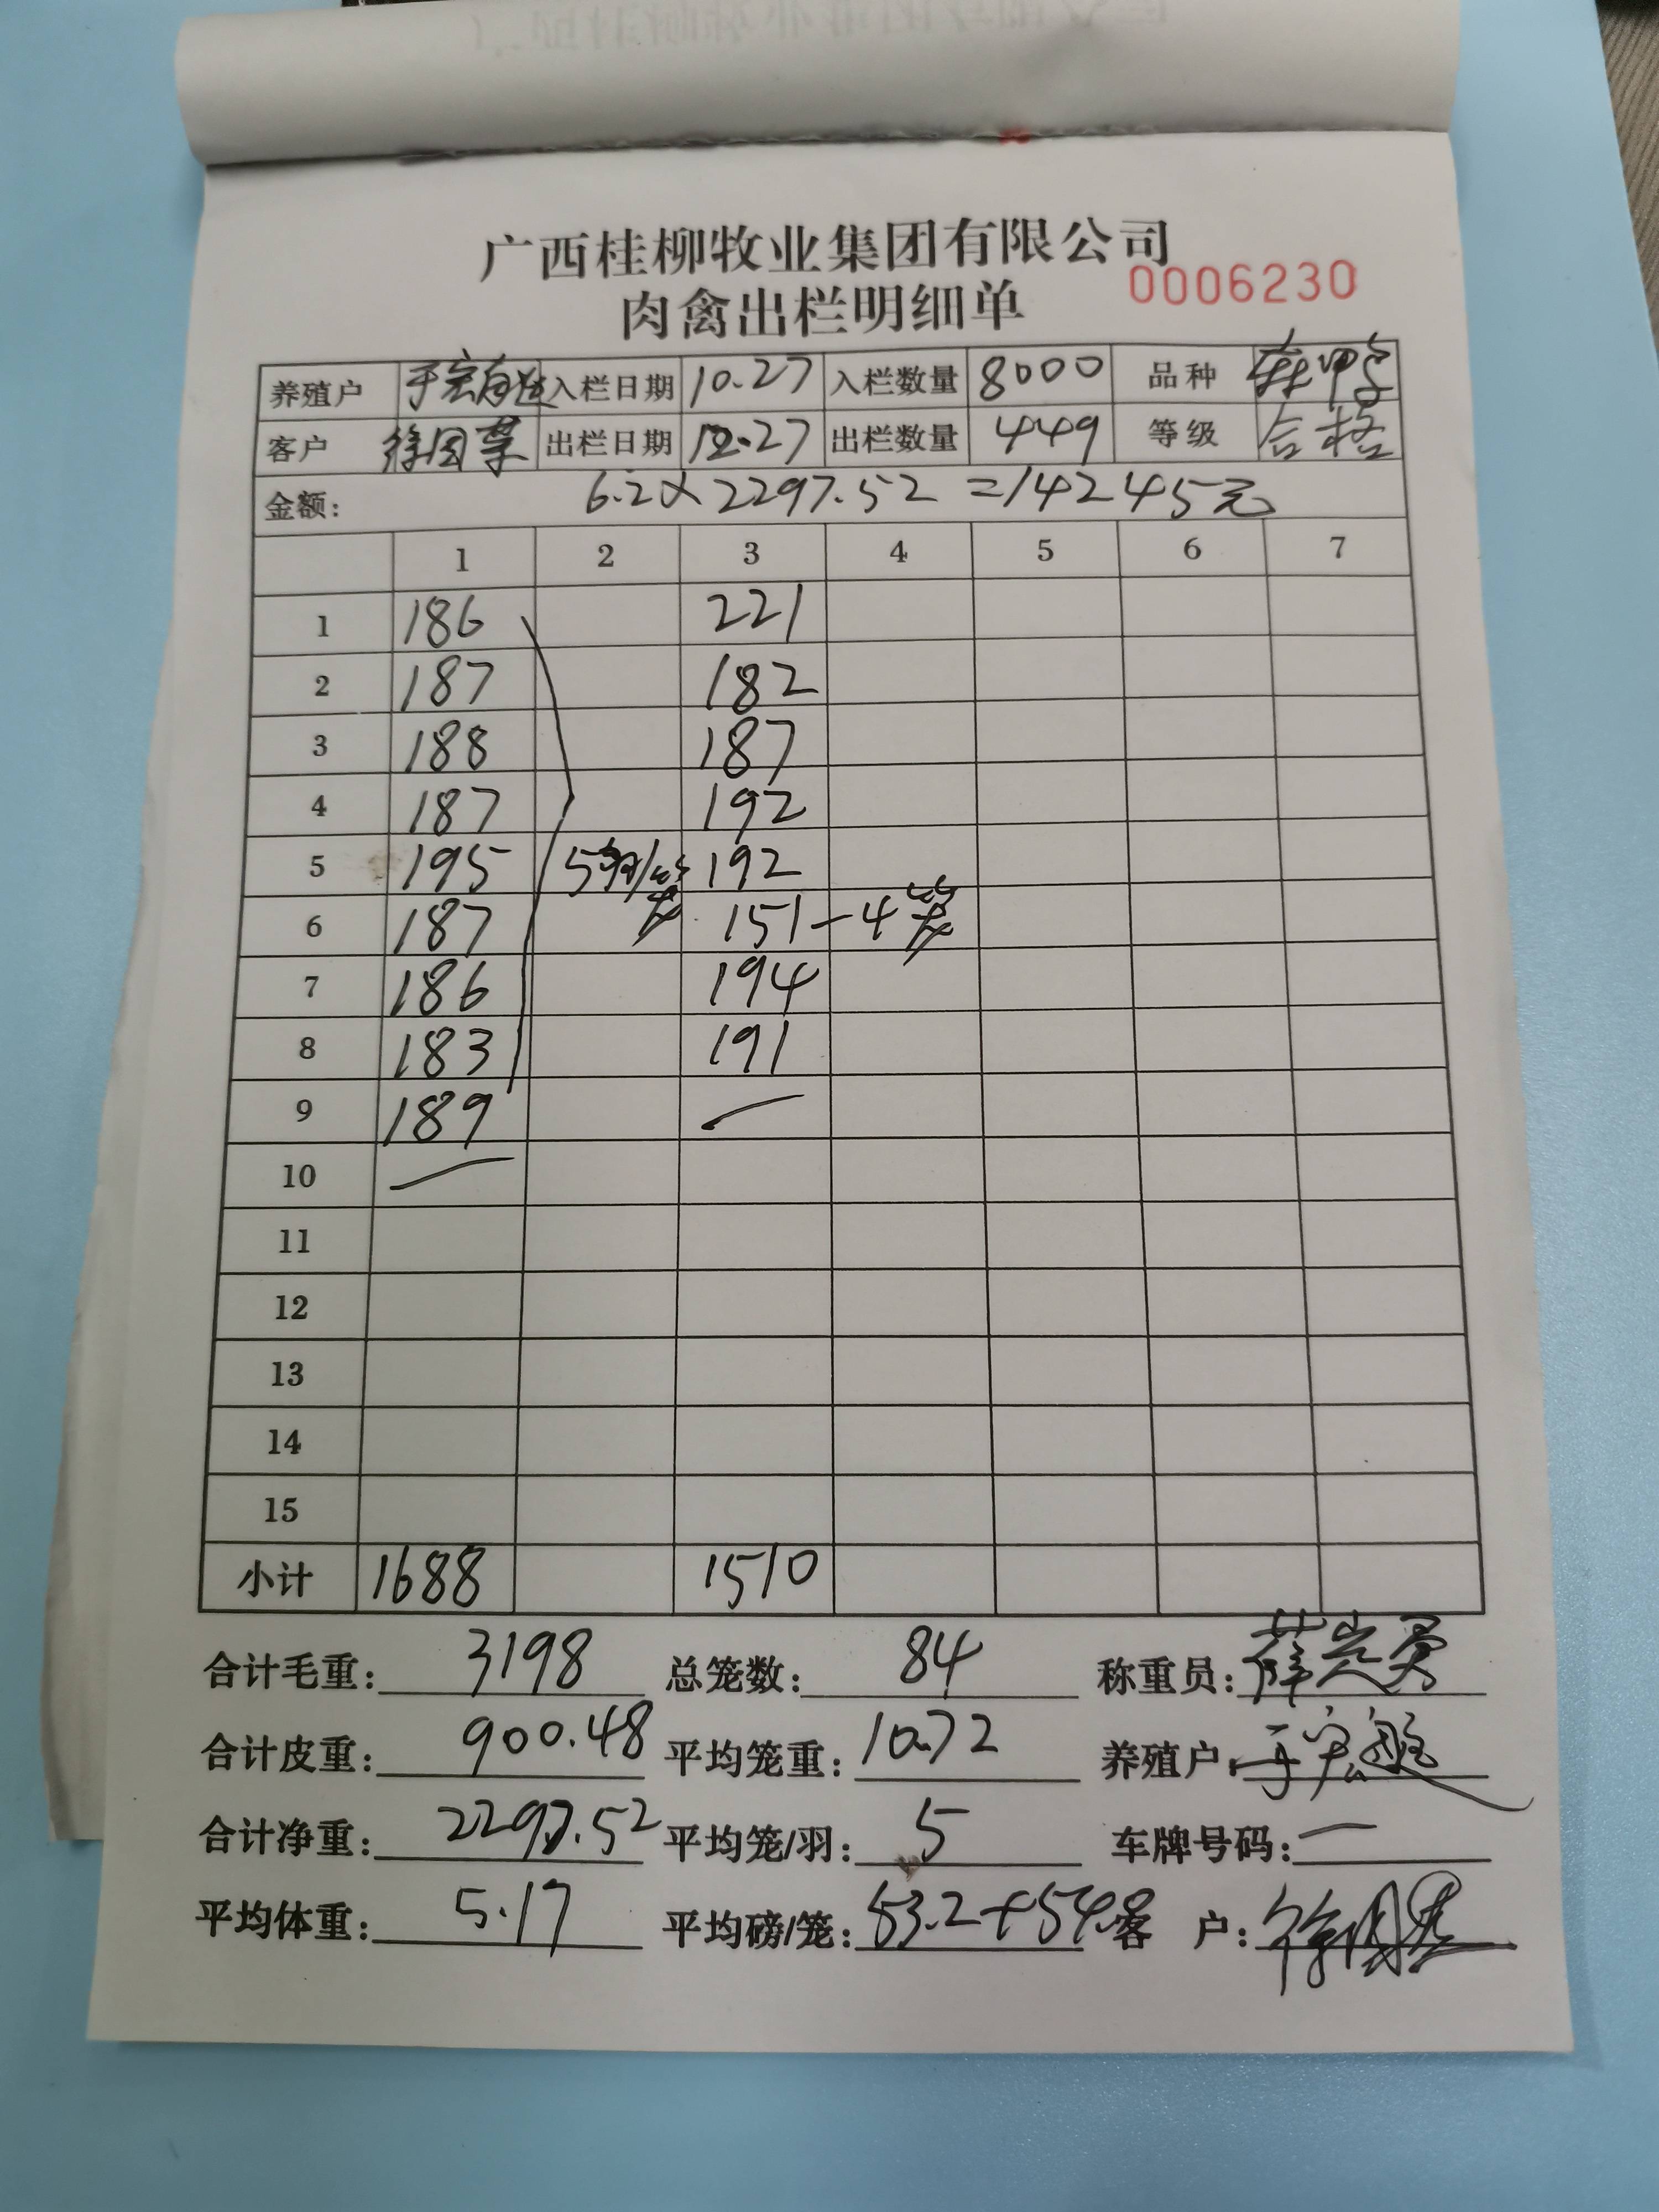 广西桂柳牧业集团有限公司
肉禽出栏明细单 0006230
养殖户 于宏 入栏日期 10.27 入栏数量 8000 品种
客户 徐国 出栏日期 12.27 出栏数量 449 等级 合格
金额: 6.2×2297.52=14245元
1 2 3 4 5 6 7
1 186 221
2 187 182
3 188 187
4 187 192
5 195 5羽/ 192
6 187 151-4笼
7 186 194
8 183 191
9 189 —
10 —
11
12
13
14
15
小计 1688 1510
合计毛重: 3198 总笼数: 84 称重员: 薛
合计皮重: 900.48 平均笼重: 10.72 养殖户: 于宏
合计净重: 2297.52 平均笼/羽: 5 车牌号码: —
平均体重: 5.17 平均磅/笼: 53.2+54.8 客 户: 徐国